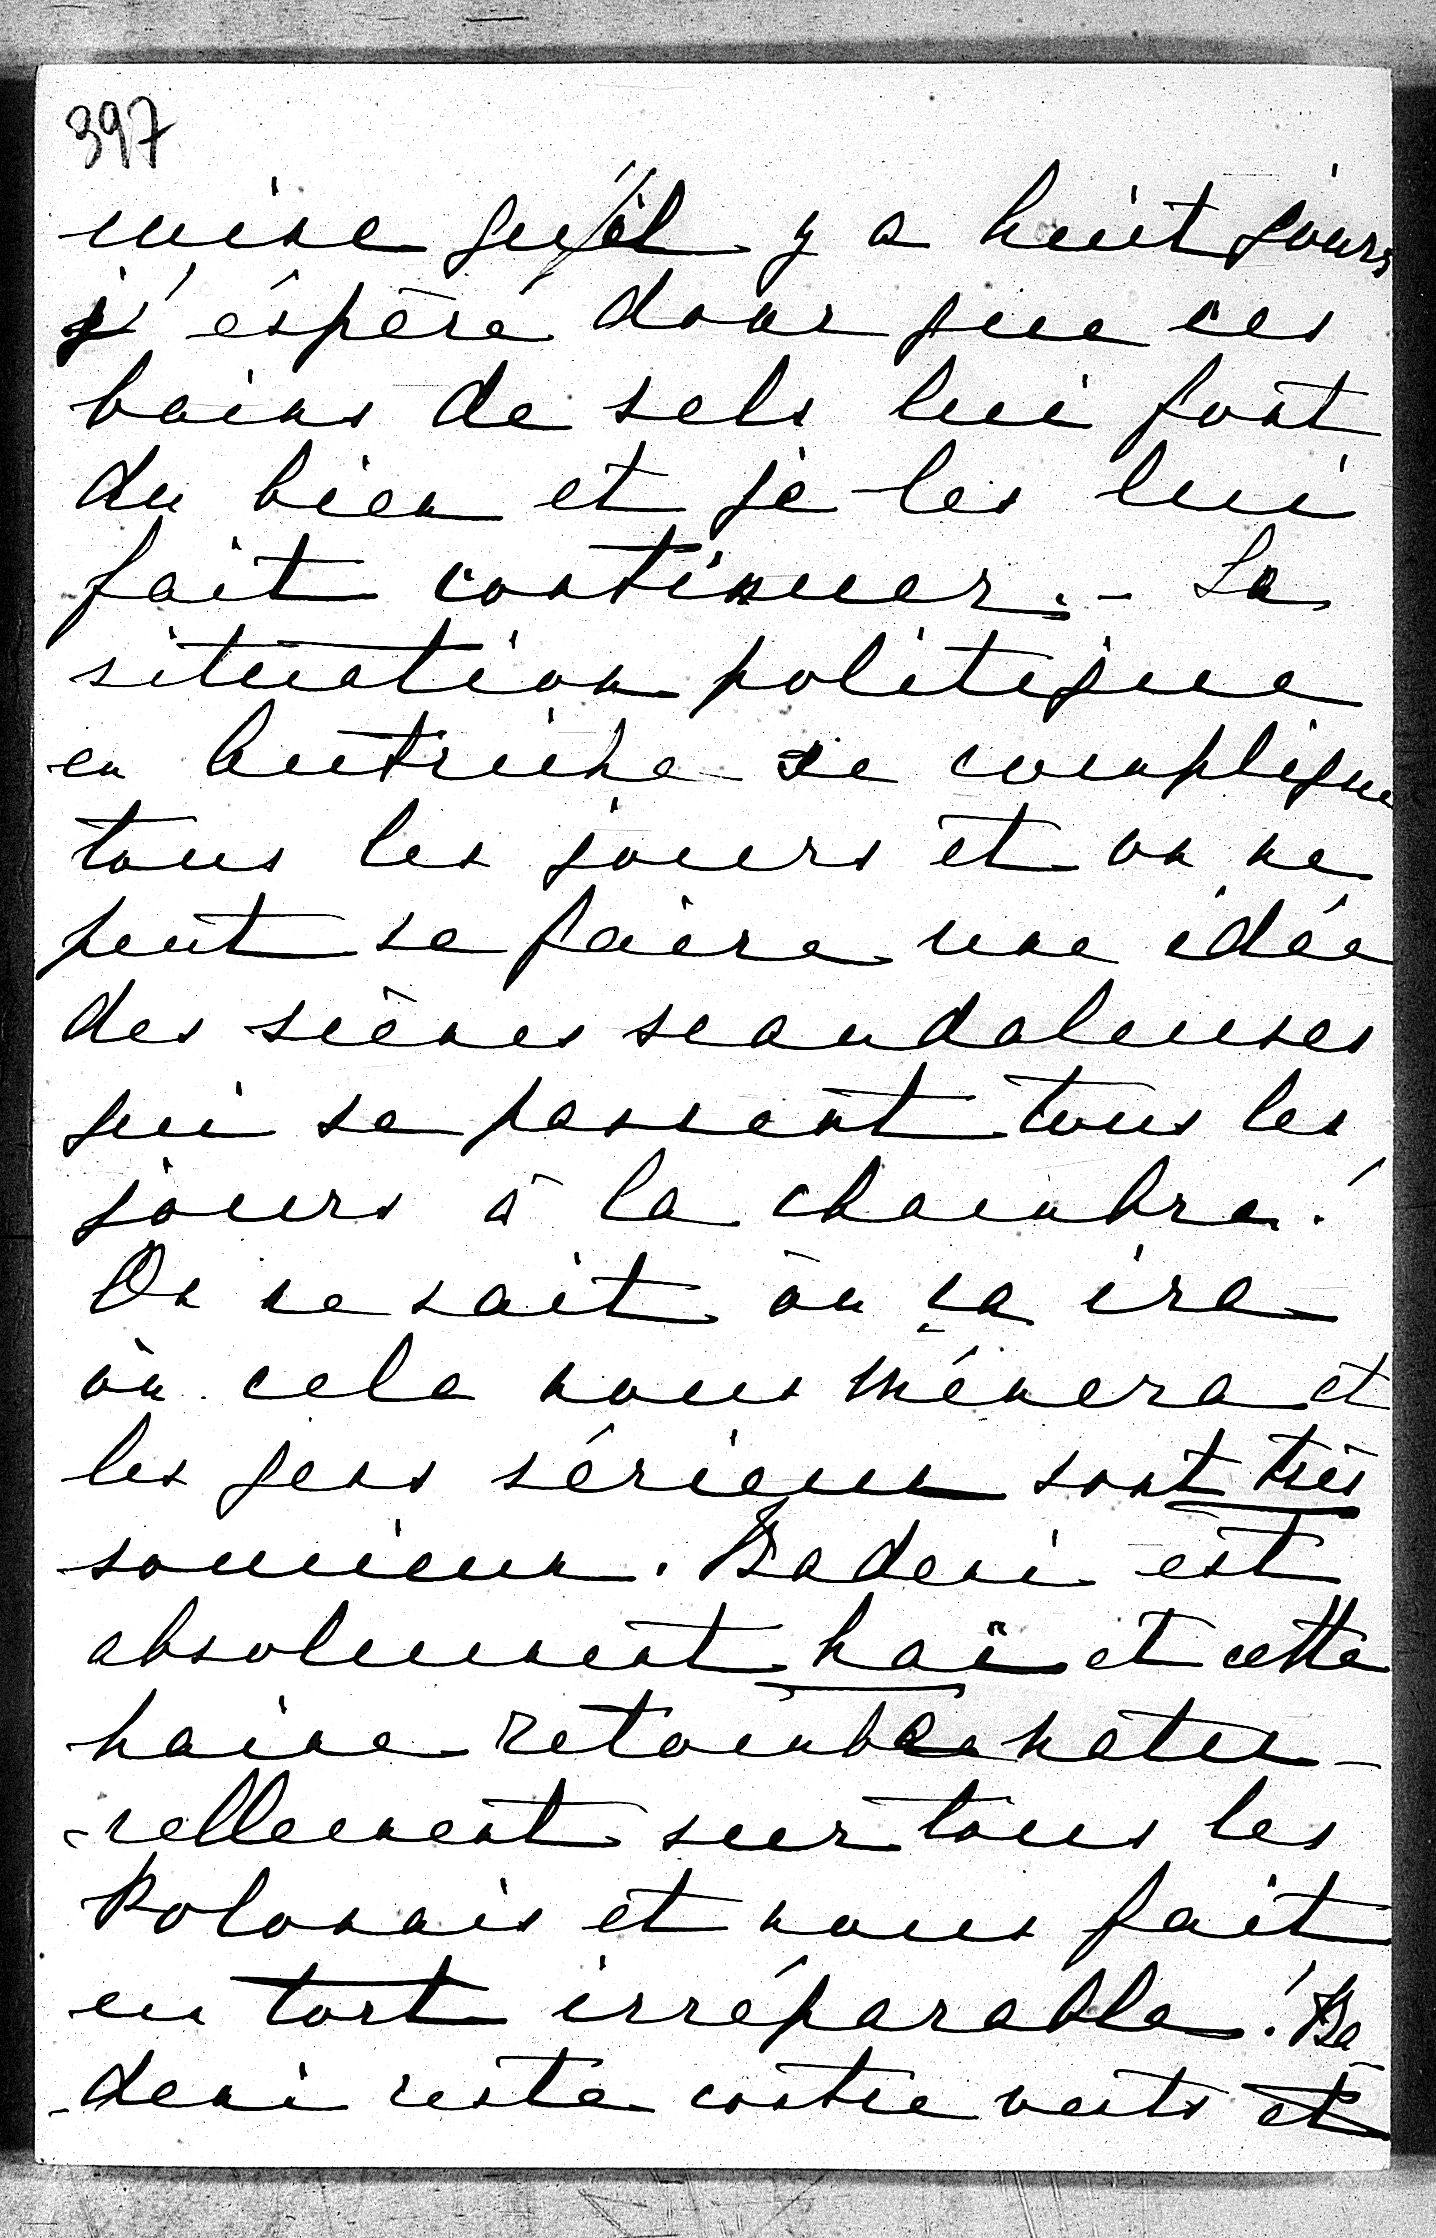 397
mine qu'il y a huit jours
j'éspère donc que ces
bains de sels lui font
du bien et je les lui
fait continuer. - La
situation politique
en Autriche se complique
tous les jours et on ne
peut se faire une idée
des scènes scandaleuses
qui se passent tous les
jours à la chambre!
On ne sait òu ça ira
òu cela nous ménera et
les gens sérieux sont très
soucieux. Badeni est
absolument haï et cette
haine retombe natu-
-rellement sur tous les
Polonais et nous fait
un tort irréparable! Ba-
-deni reste contre vents et